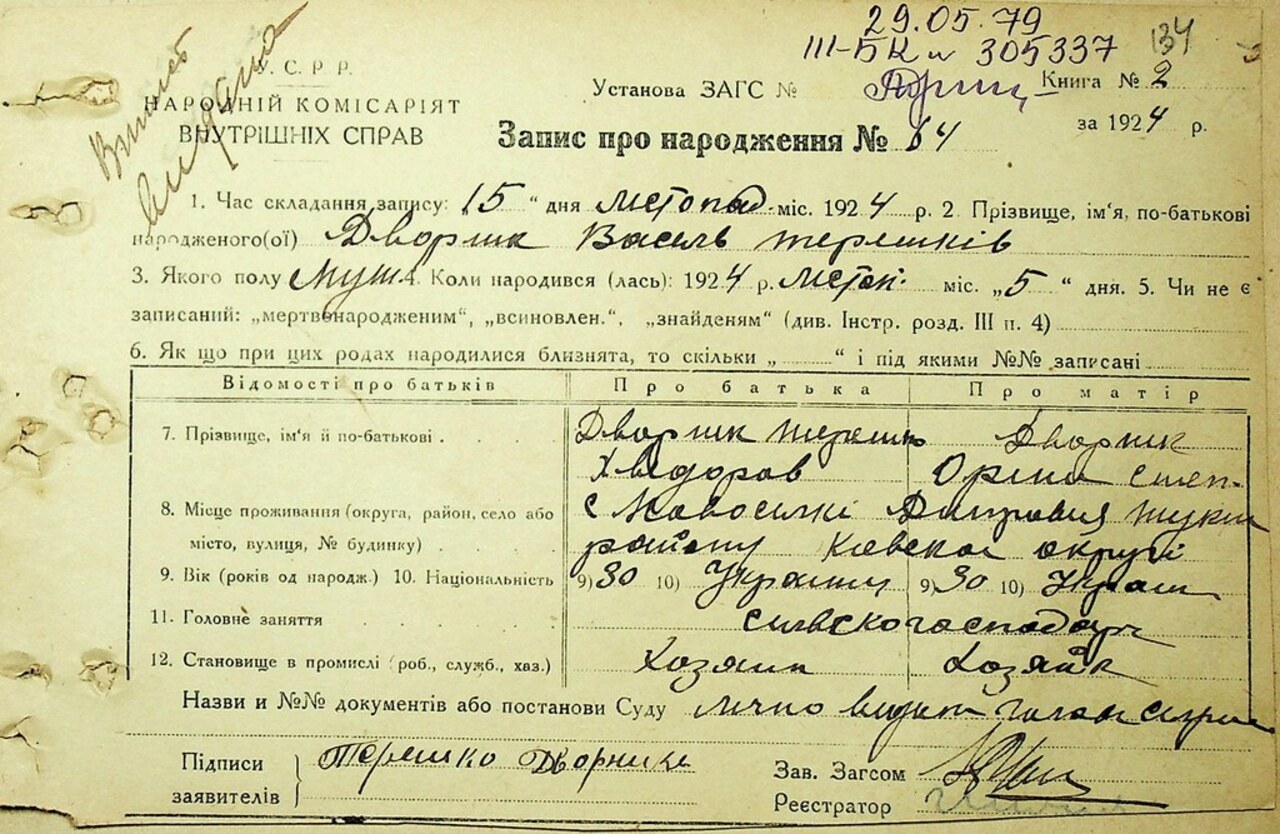 29.05.79
III-БК № 305337
134
Витяг
видана
У. С. Р. Р.
НАРОДНІЙ КОМІСАРІЯТ
ВНУТРІШНІХ СПРАВ
Установа ЗАГС №
Книга № 2
Запис про народження № 64
за 1924 р.
1. Час складання запису: „15“ дня листопад. міс. 1924 р. 2. Прізвище, ім'я, по-батькові
народженого(ої) Дворник Василь терешків
3. Якого полу Муж. 4. Коли народився (лась): 1924 р. листоп. міс. „5“ дня. 5. Чи не є
записаний: „мертвонародженим“, „всиновлен.“, „знайденям“ (див. Інстр. розд. III п. 4)
6. Як що при цих родах народилися близнята, то скільки „ “ і під якими №№ записані
Відомості про батьків Про батька Про матір
7. Прізвище, ім'я й по-батькові Дворник терешко Дворник
Хведоров Орина степ.
8. Місце проживання (округа, район, село або с Новосілкі
місто, вулиця, № будинку) району Київской округи
9. Вік (років од народж.) 10. Національність 9) 30 10) Украинц 9) 30 10) Украин
11. Головне заняття сильскогосподарч
12. Становище в промислі (роб., служб., хаз.) Хозяин Хозяйк
Назви и №№ документів або постанови Суду лично
Підписи
заявителів
Терешко Дворника
Зав. Загсом
Реєстратор